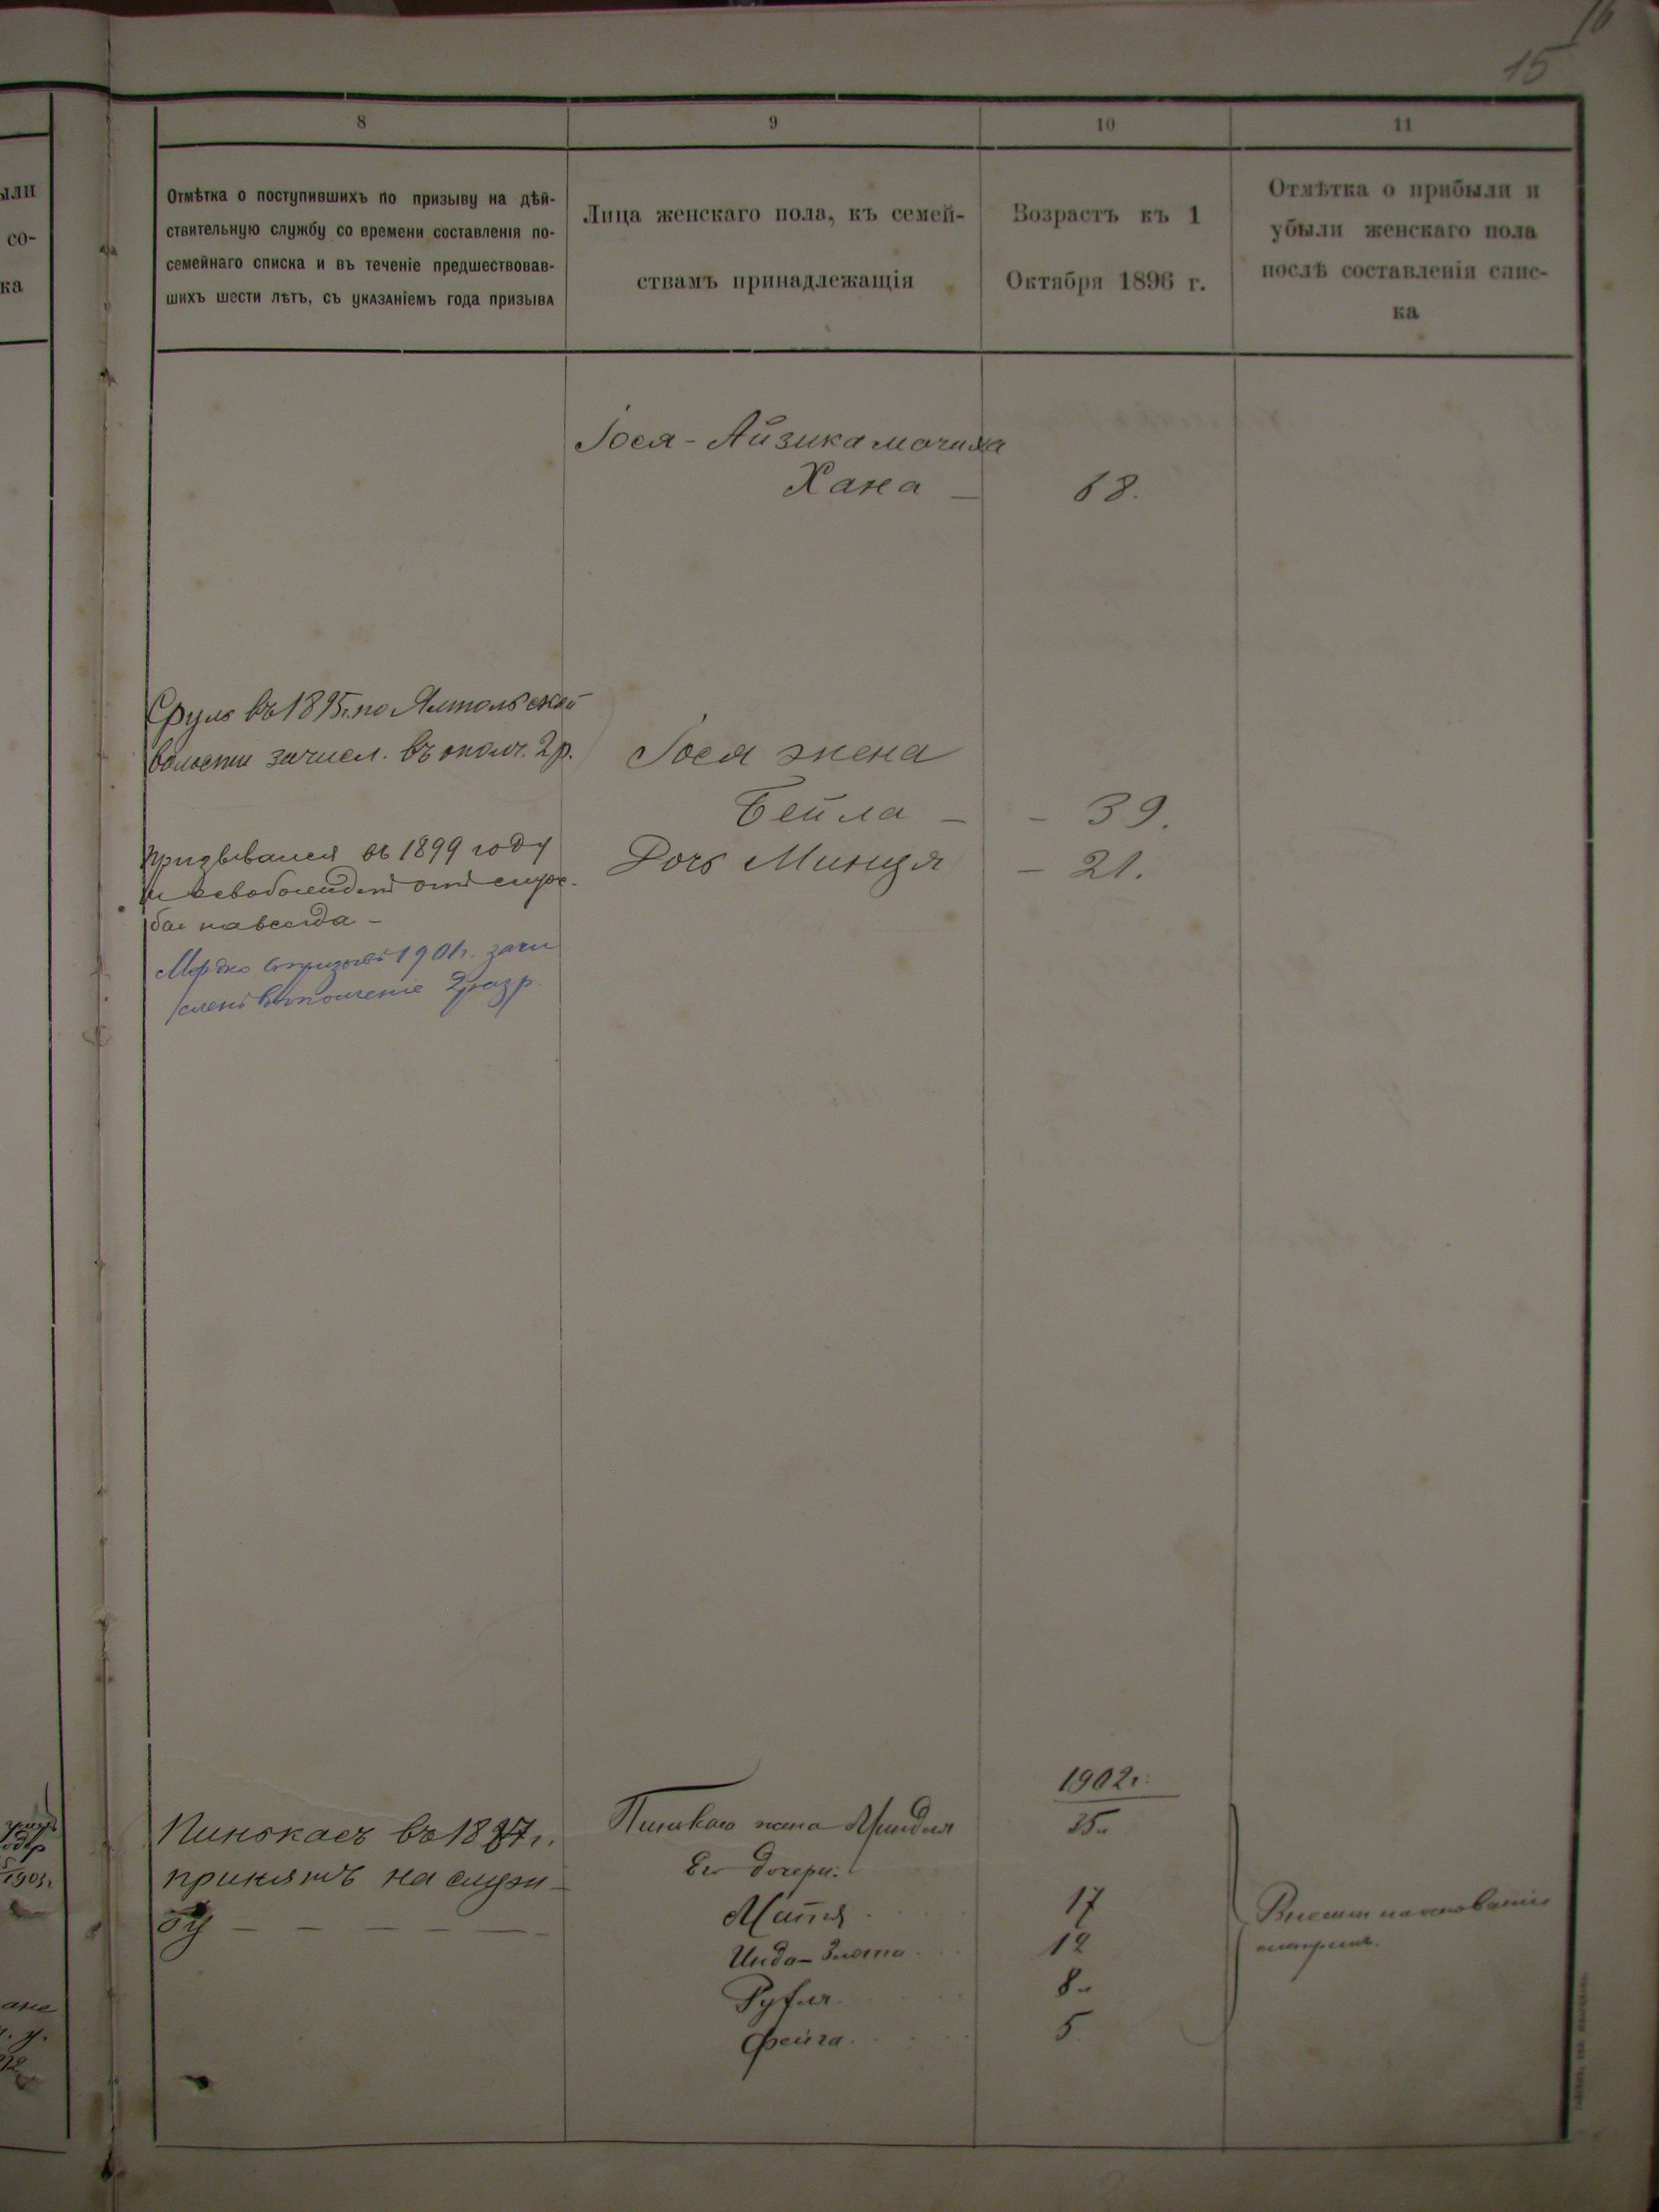 16
15
8
9
10
11
Отмѣтка о поступившихъ по призыву на дѣй-
ствительную службу со времени составленія по-
семейнаго списка и въ теченіе предшествовав-
шихъ шести лѣтъ, съ указаніемъ года призыва
Лица женскаго пола, къ семей-
ствамъ принадлежащія
Возрастъ къ 1
Октября 1896 г.
Отмѣтка о прибыли и
убыли женскаго пола
послѣ составленія спис-
ка
ыли
со-
ка
Іося-Айзика мачиха
Хана — 68.
Сруль въ 1895г. по Ямпольской
волости зачисл. въ ополч. 2 р.
Іося жена
Бейла — - 39.
Дочь Минця — 21.
Призывался въ 1899 году
и освобожденъ отъ служ-
бы навсегда —
Мордко въ призывъ 1901 г. зачи
сленъ въ ополченіе 2 разр.
1902 г.
Пинькасъ въ 1887 г.
принятъ на служ-
бу — — — —
Пинькаса жена 35 л
Его дочери:
17
Инда-Злота 12
Рухля 8 л
Фейга 5
Внесены на основаніи
1903 г.